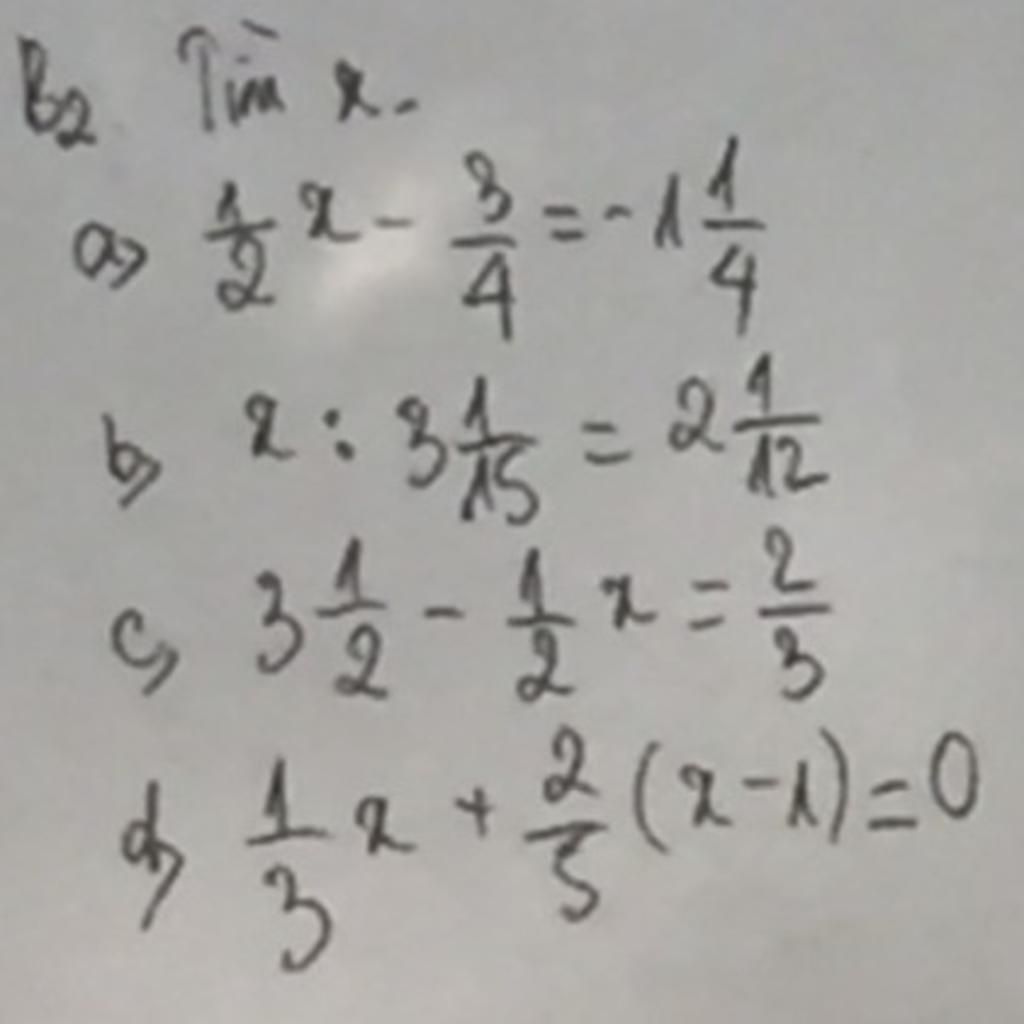 B2 Tìm x.
a, 1/2 x - 3/4 = -1 1/4
b, x : 3 1/15 = 2 1/12
c, 3 1/2 - 1/2 x = 2/3
d, 1/3 x + 2/5 (x - 1) = 0